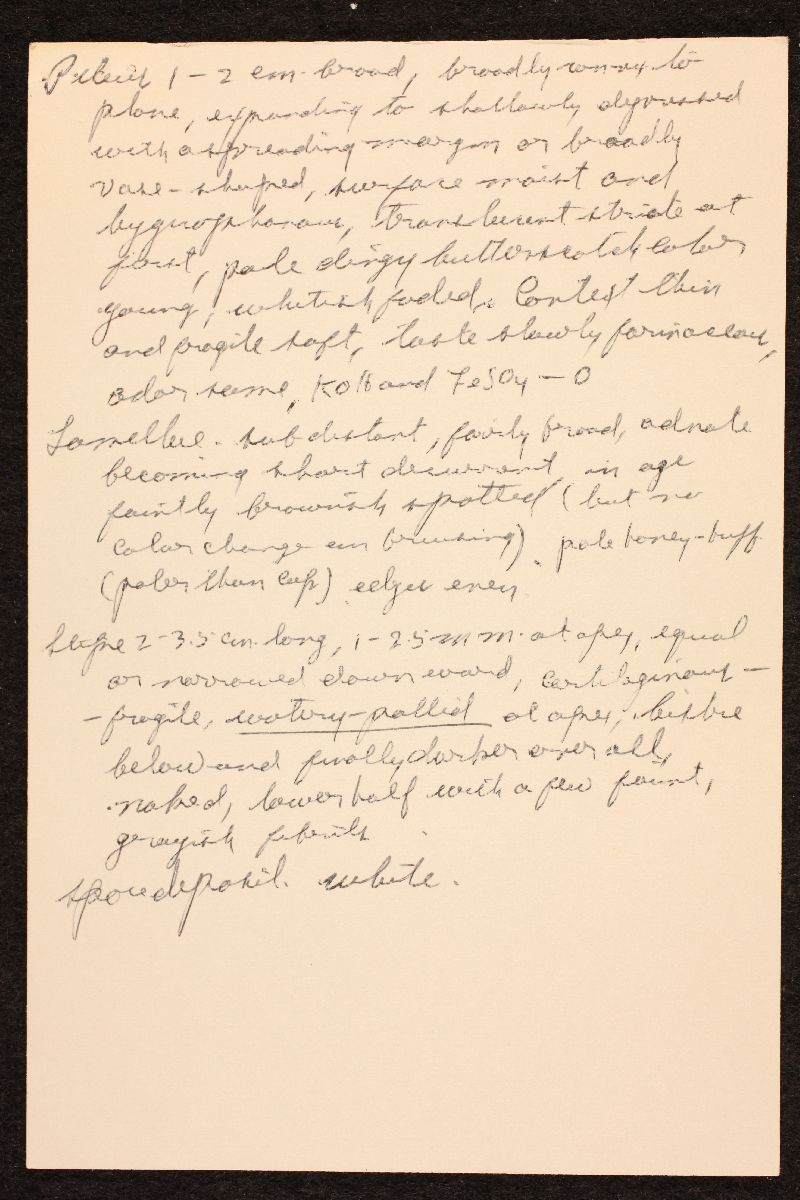 Pileus 1 – 2 cm. broad, broadly convex to
plane, expanding to shallowly depressed
with a spreading margin or broadly
vase-shaped, surface moist and
hygrophanous, translucent striate at
first, pale dingy butterscotch color
young, whitish faded. Context thin
and fragile soft, taste slowly farinaceous,
odor same, KOH and FeSO4 – O
Lamellae. subdistant, fairly broad, adnate
becoming short decurrent, in age
faintly brownish spotted (but no
color change on bruising). pale honey-buff
(paler than cap) edges even
Stipe 2 – 3.5 cm. long, 1 – 2.5 mm. at apex, equal
or narrowed downward, cartilaginous –
– fragile, watery-pallid at apex, bistre
below and finally darker over all,
naked, lower half with a few faint,
grayish fibrils.
Spore deposit. white.